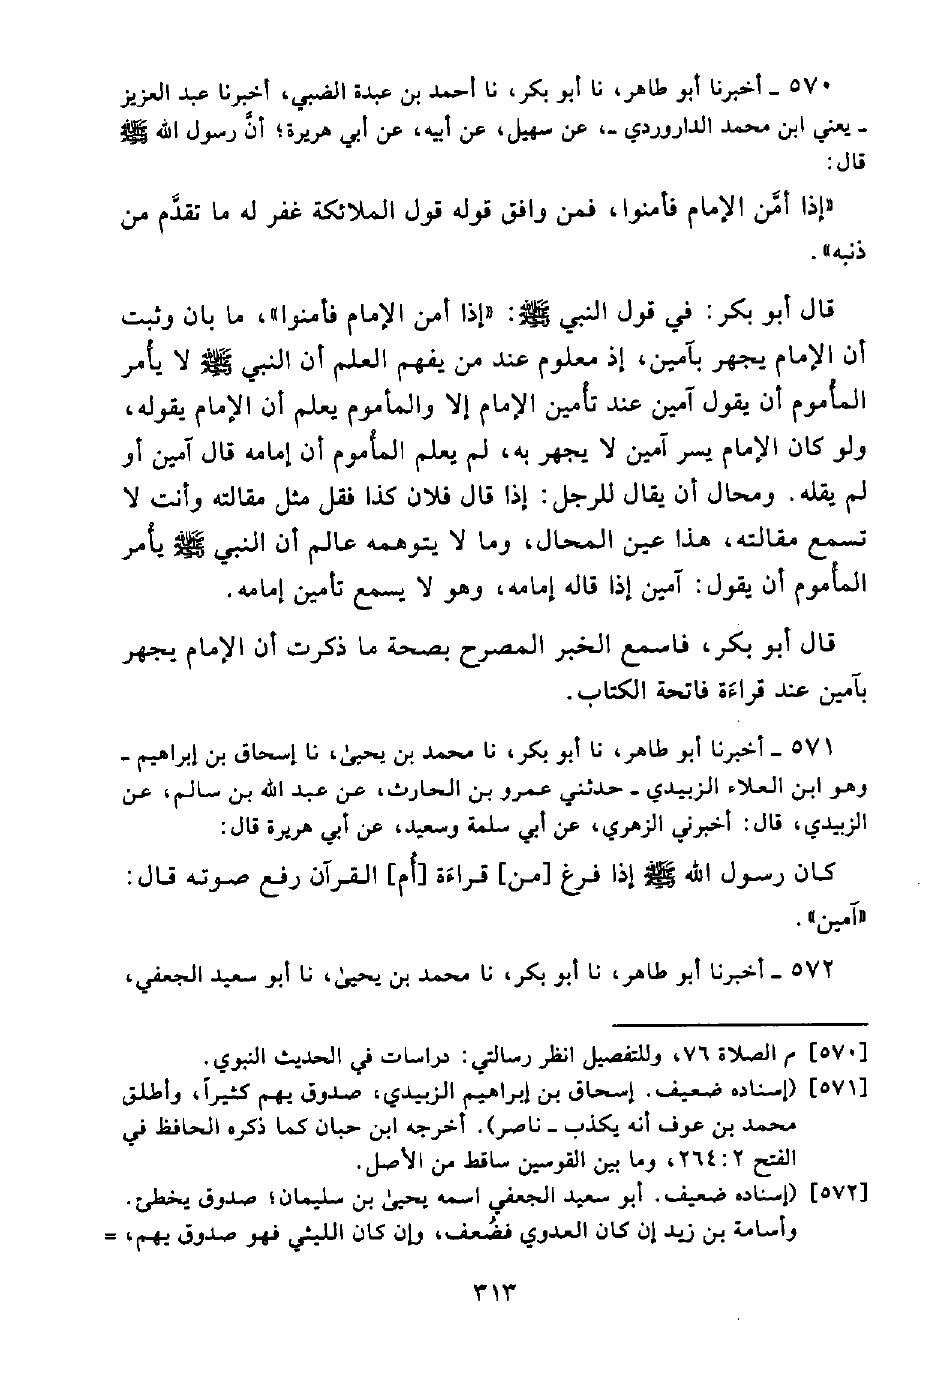 ٥٧٠ ـ أخبرنا أبو طاهر، نا أبو بكر، نا أحمد بن عبدة الضبي، أخبرنا عبد العزيز
ـ يعني ابن محمد الداروردي ـ، عن سهيل، عن أبيه، عن أبي هريرة؛ أنَّ رسول الله ﷺ
قال:
«إذا أمَّن الإمام فأمنوا، فمن وافق قوله قول الملائكة غفر له ما تقدَّم من
ذنبه».
قال أبو بكر: في قول النبي ﷺ: «إذا أمن الإمام فأمنوا»، ما بان وثبت
أن الإمام يجهر بآمين، إذ معلوم عند من يفهم العلم أن النبي ﷺ لا يأمر
المأموم أن يقول آمين عند تأمين الإمام إلا والمأموم يعلم أن الإمام يقوله،
ولو كان الإمام يسر آمين لا يجهر به، لم يعلم المأموم أن إمامه قال آمين أو
لم يقله. ومحال أن يقال للرجل: إذا قال فلان كذا فقل مثل مقالته وأنت لا
تسمع مقالته، هذا عين المحال، وما لا يتوهمه عالم أن النبي ﷺ يأمر
المأموم أن يقول: آمين إذا قاله إمامه، وهو لا يسمع تأمين إمامه.
قال أبو بكر، فاسمع الخبر المصرح بصحة ما ذكرت أن الإمام يجهر
بآمين عند قراءة فاتحة الكتاب.
٥٧١ ـ أخبرنا أبو طاهر، نا أبو بكر، نا محمد بن يحيىٰ، نا إسحاق بن إبراهيم ـ
وهو ابن العلاء الزبيدي ـ حدثني عمرو بن الحارث، عن عبد الله بن سالم، عن
الزبيدي، قال: أخبرني الزهري، عن أبي سلمة وسعيد، عن أبي هريرة قال:
كان رسول الله ﷺ إذا فرغ [من] قراءة [أُم] القرآن رفع صوته قال:
«آمين».
٥٧٢ ـ أخبرنا أبو طاهر، نا أبو بكر، نا محمد بن يحيىٰ، نا أبو سعيد الجعفي،
[٥٧٠] م الصلاة ٧٦، وللتفصيل انظر رسالتي: دراسات في الحديث النبوي.
[٥٧١] (إسناده ضعيف. إسحاق بن إبراهيم الزبيدي، صدوق يهم كثيراً، وأطلق
محمد بن عوف أنه يكذب ـ ناصر). أخرجه ابن حبان كما ذكره الحافظ في
الفتح ٢: ٢٦٤، وما بين القوسين ساقط من الأصل.
[٥٧٢] (إسناده ضعيف. أبو سعيد الجعفي اسمه يحيىٰ بن سليمان؛ صدوق يخطئ.
وأسامة بن زيد إن كان العدوي فضُعف، وإن كان الليثي فهو صدوق يهم، =
٣١٣